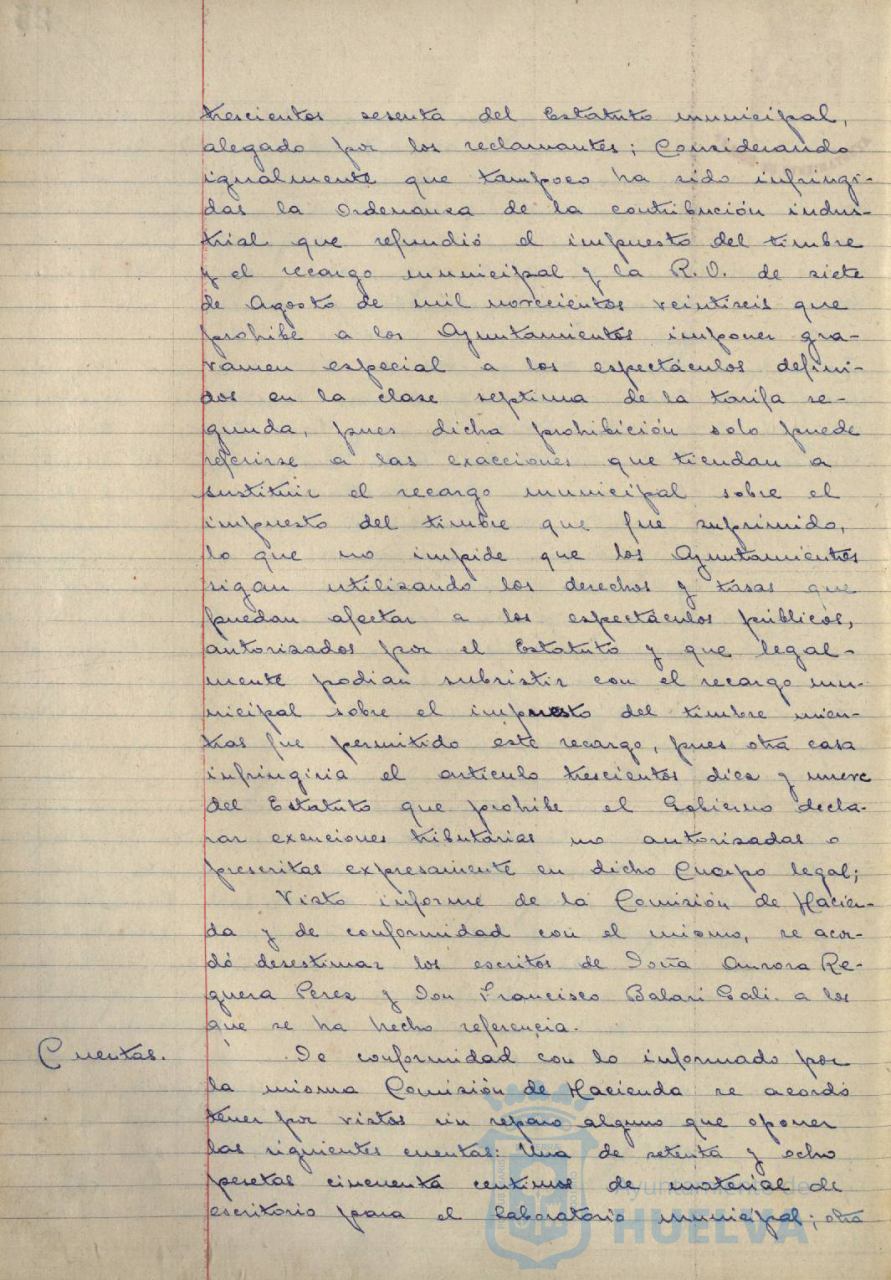 trescientos sesenta del Estatuto municipal,
alegado por los reclamantes; Considerando
igualmente que tampoco ha sido infringi-
das la Ordenanza de la contribución indus-
trial que refundió el impuesto del timbre
y el recargo municipal y la R. O. de siete
de Agosto de mil novecientos veintiseis que
prohibe a los Ayuntamientos imponer gra-
vamen especial a los espectáculos defini-
dos en la clase septima de la tarifa se-
gunda, pues dicha prohibición solo puede
referirse a las exacciones que tiendan a
sustituir el recargo municipal sobre el
impuesto del timbre que fue suprimido,
lo que no impide que los Ayuntamientos
sigan utilizando los derechos y tasas que
puedan afectar a los espectáculos públicos,
autorizados por el Estatuto y que legal-
mente podian subsistir con el recargo mu-
nicipal sobre el impuesto del timbre mien-
tras fue permitido este recargo, pues otra casa
infringiria el articulo trescientos diez y nueve
del Estatuto que prohibe el Gobierno decla-
rar exenciones tributarias no autorizadas o
prescritas expresamente en dicho Cuerpo legal;
Visto informe de la Comisión de Hacien-
da y de conformidad con el mismo, se acor-
dó desestimar los escritos de Doña Aurora Re-
guera Perez y Don Francisco Balari Gali. a los
que se ha hecho referencia.
Cuentas. De conformidad con lo informado por
la misma Comisión de Hacienda se acordó
tener por vistas sin reparo alguno que oponer
las siguientes cuentas: Una de setenta y ocho
pesetas cincuenta centimos de material de
escritorio para el Laboratorio municipal; otra
Ayuntamiento de
HUELVA